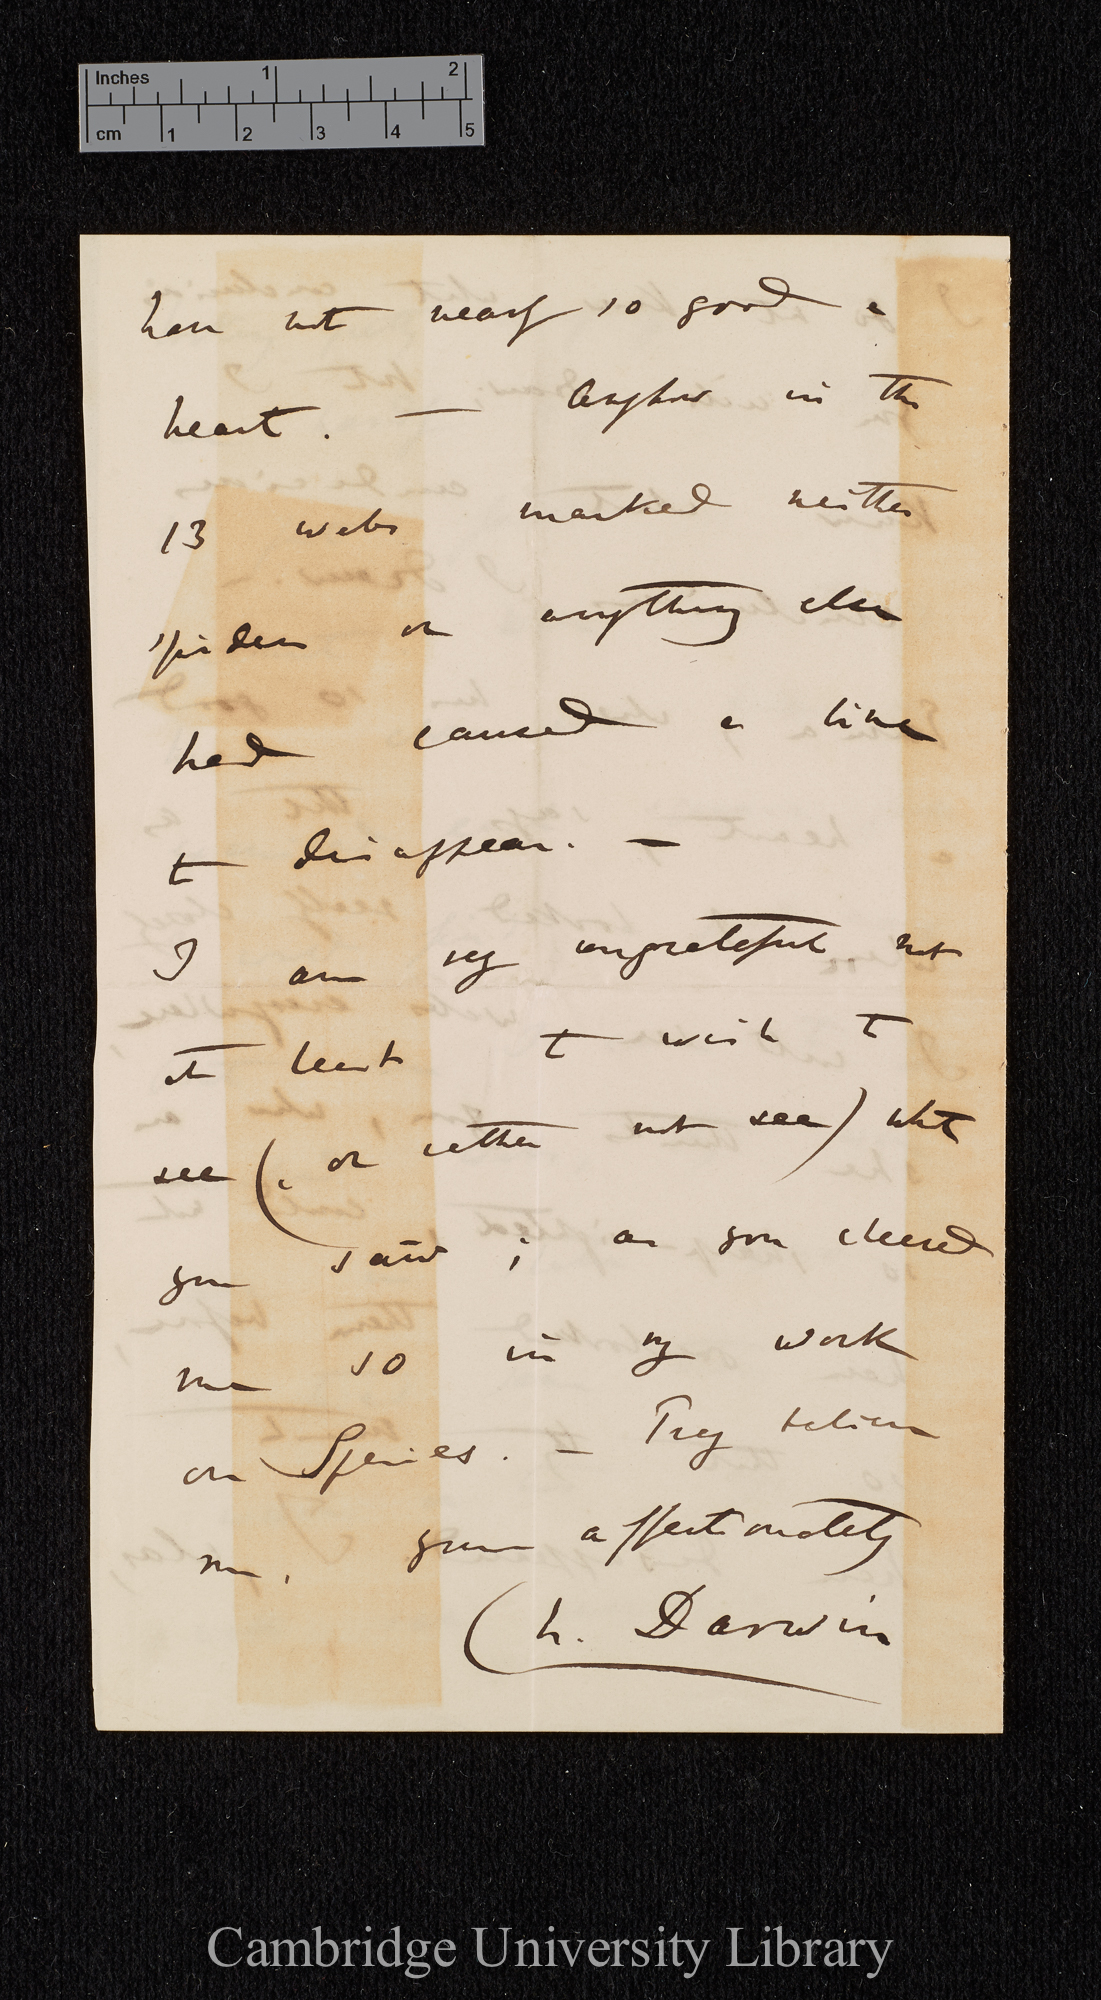 Inches 1 2
cm 1 2 3 4 5
have not nearly so good a
heart. — Anyhow in the
13 webs marked neither
spiders or anything else
had caused a line
to disappear. —
I am very ungrateful not
at least to wish to
see (, or rather not see) what
you saw; as you cheered
me so in my work
on Species. — Pray believe
me, yours affectionately
Ch. Darwin
Cambridge University Library